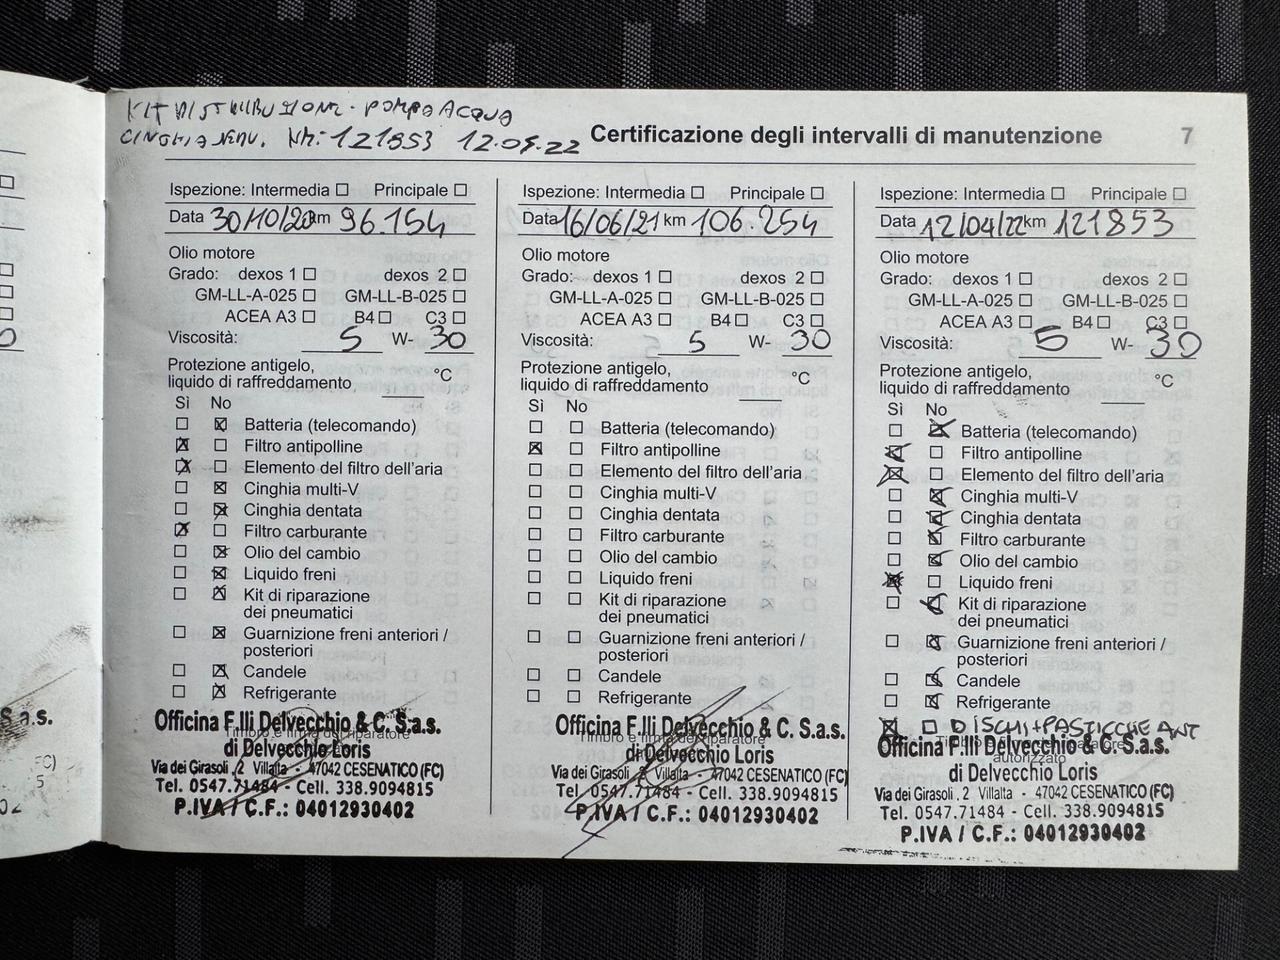 KIT DISTRIBUZIONE - POMPA ACQUA
CINGHIA SERV. KM: 121853 12.04.22
Certificazione degli intervalli di manutenzione 7
Ispezione: Intermedia ☐ Principale ☐
Data 30/10/20 km 96.154
Olio motore
Grado: dexos 1 ☐ dexos 2 ☐
GM-LL-A-025 ☐ GM-LL-B-025 ☐
ACEA A3 ☐ B4 ☐ C3 ☐
Viscosità: 5 W- 30
Protezione antigelo,
liquido di raffreddamento °C
Sì No
☐ ☒ Batteria (telecomando)
☒ ☐ Filtro antipolline
☒ ☐ Elemento del filtro dell'aria
☐ ☒ Cinghia multi-V
☐ ☒ Cinghia dentata
☒ ☐ Filtro carburante
☐ ☒ Olio del cambio
☐ ☒ Liquido freni
☐ ☒ Kit di riparazione
dei pneumatici
☐ ☒ Guarnizione freni anteriori /
posteriori
☐ ☒ Candele
☐ ☒ Refrigerante
Officina F.lli Delvecchio & C. S.a.s.
Timbro e firma del riparatore
di Delvecchio Loris
Via dei Girasoli, 2 Villalta - 47042 CESENATICO (FC)
Tel. 0547.71484 - Cell. 338.9094815
P.IVA / C.F.: 04012930402
Ispezione: Intermedia ☐ Principale ☐
Data 16/06/21 km 106.254
Olio motore
Grado: dexos 1 ☐ dexos 2 ☐
GM-LL-A-025 ☐ GM-LL-B-025 ☐
ACEA A3 ☐ B4 ☐ C3 ☐
Viscosità: 5 W- 30
Protezione antigelo,
liquido di raffreddamento °C
Sì No
☐ ☐ Batteria (telecomando)
☒ ☐ Filtro antipolline
☐ ☐ Elemento del filtro dell'aria
☐ ☐ Cinghia multi-V
☐ ☐ Cinghia dentata
☐ ☐ Filtro carburante
☐ ☐ Olio del cambio
☐ ☐ Liquido freni
☐ ☐ Kit di riparazione
dei pneumatici
☐ ☐ Guarnizione freni anteriori /
posteriori
☐ ☐ Candele
☐ ☐ Refrigerante
Officina F.lli Delvecchio & C. S.a.s.
Timbro e firma del riparatore
di Delvecchio Loris
Via dei Girasoli, 2 Villalta - 47042 CESENATICO (FC)
Tel. 0547.71484 - Cell. 338.9094815
P.IVA / C.F.: 04012930402
Ispezione: Intermedia ☐ Principale ☐
Data 12/04/22 km 121853
Olio motore
Grado: dexos 1 ☐ dexos 2 ☐
GM-LL-A-025 ☐ GM-LL-B-025 ☐
ACEA A3 ☐ B4 ☐ C3 ☐
Viscosità: 5 W- 30
Protezione antigelo,
liquido di raffreddamento °C
Sì No
☐ ☒ Batteria (telecomando)
☒ ☐ Filtro antipolline
☒ ☐ Elemento del filtro dell'aria
☐ ☒ Cinghia multi-V
☐ ☒ Cinghia dentata
☐ ☒ Filtro carburante
☐ ☒ Olio del cambio
☒ ☐ Liquido freni
☐ ☒ Kit di riparazione
dei pneumatici
☐ ☒ Guarnizione freni anteriori /
posteriori
☐ ☒ Candele
☐ ☒ Refrigerante
☒ ☐ DISCHI+PASTICCHE ANT
Officina F.lli Delvecchio & C. S.a.s.
autorizzato
di Delvecchio Loris
Via dei Girasoli, 2 Villalta - 47042 CESENATICO (FC)
Tel. 0547.71484 - Cell. 338.9094815
P.IVA / C.F.: 04012930402